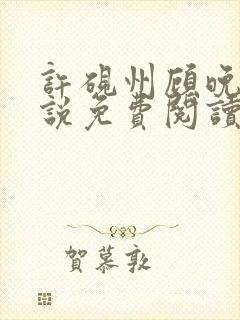 許硯州顧晚
說免費閱讀
賀慕敦